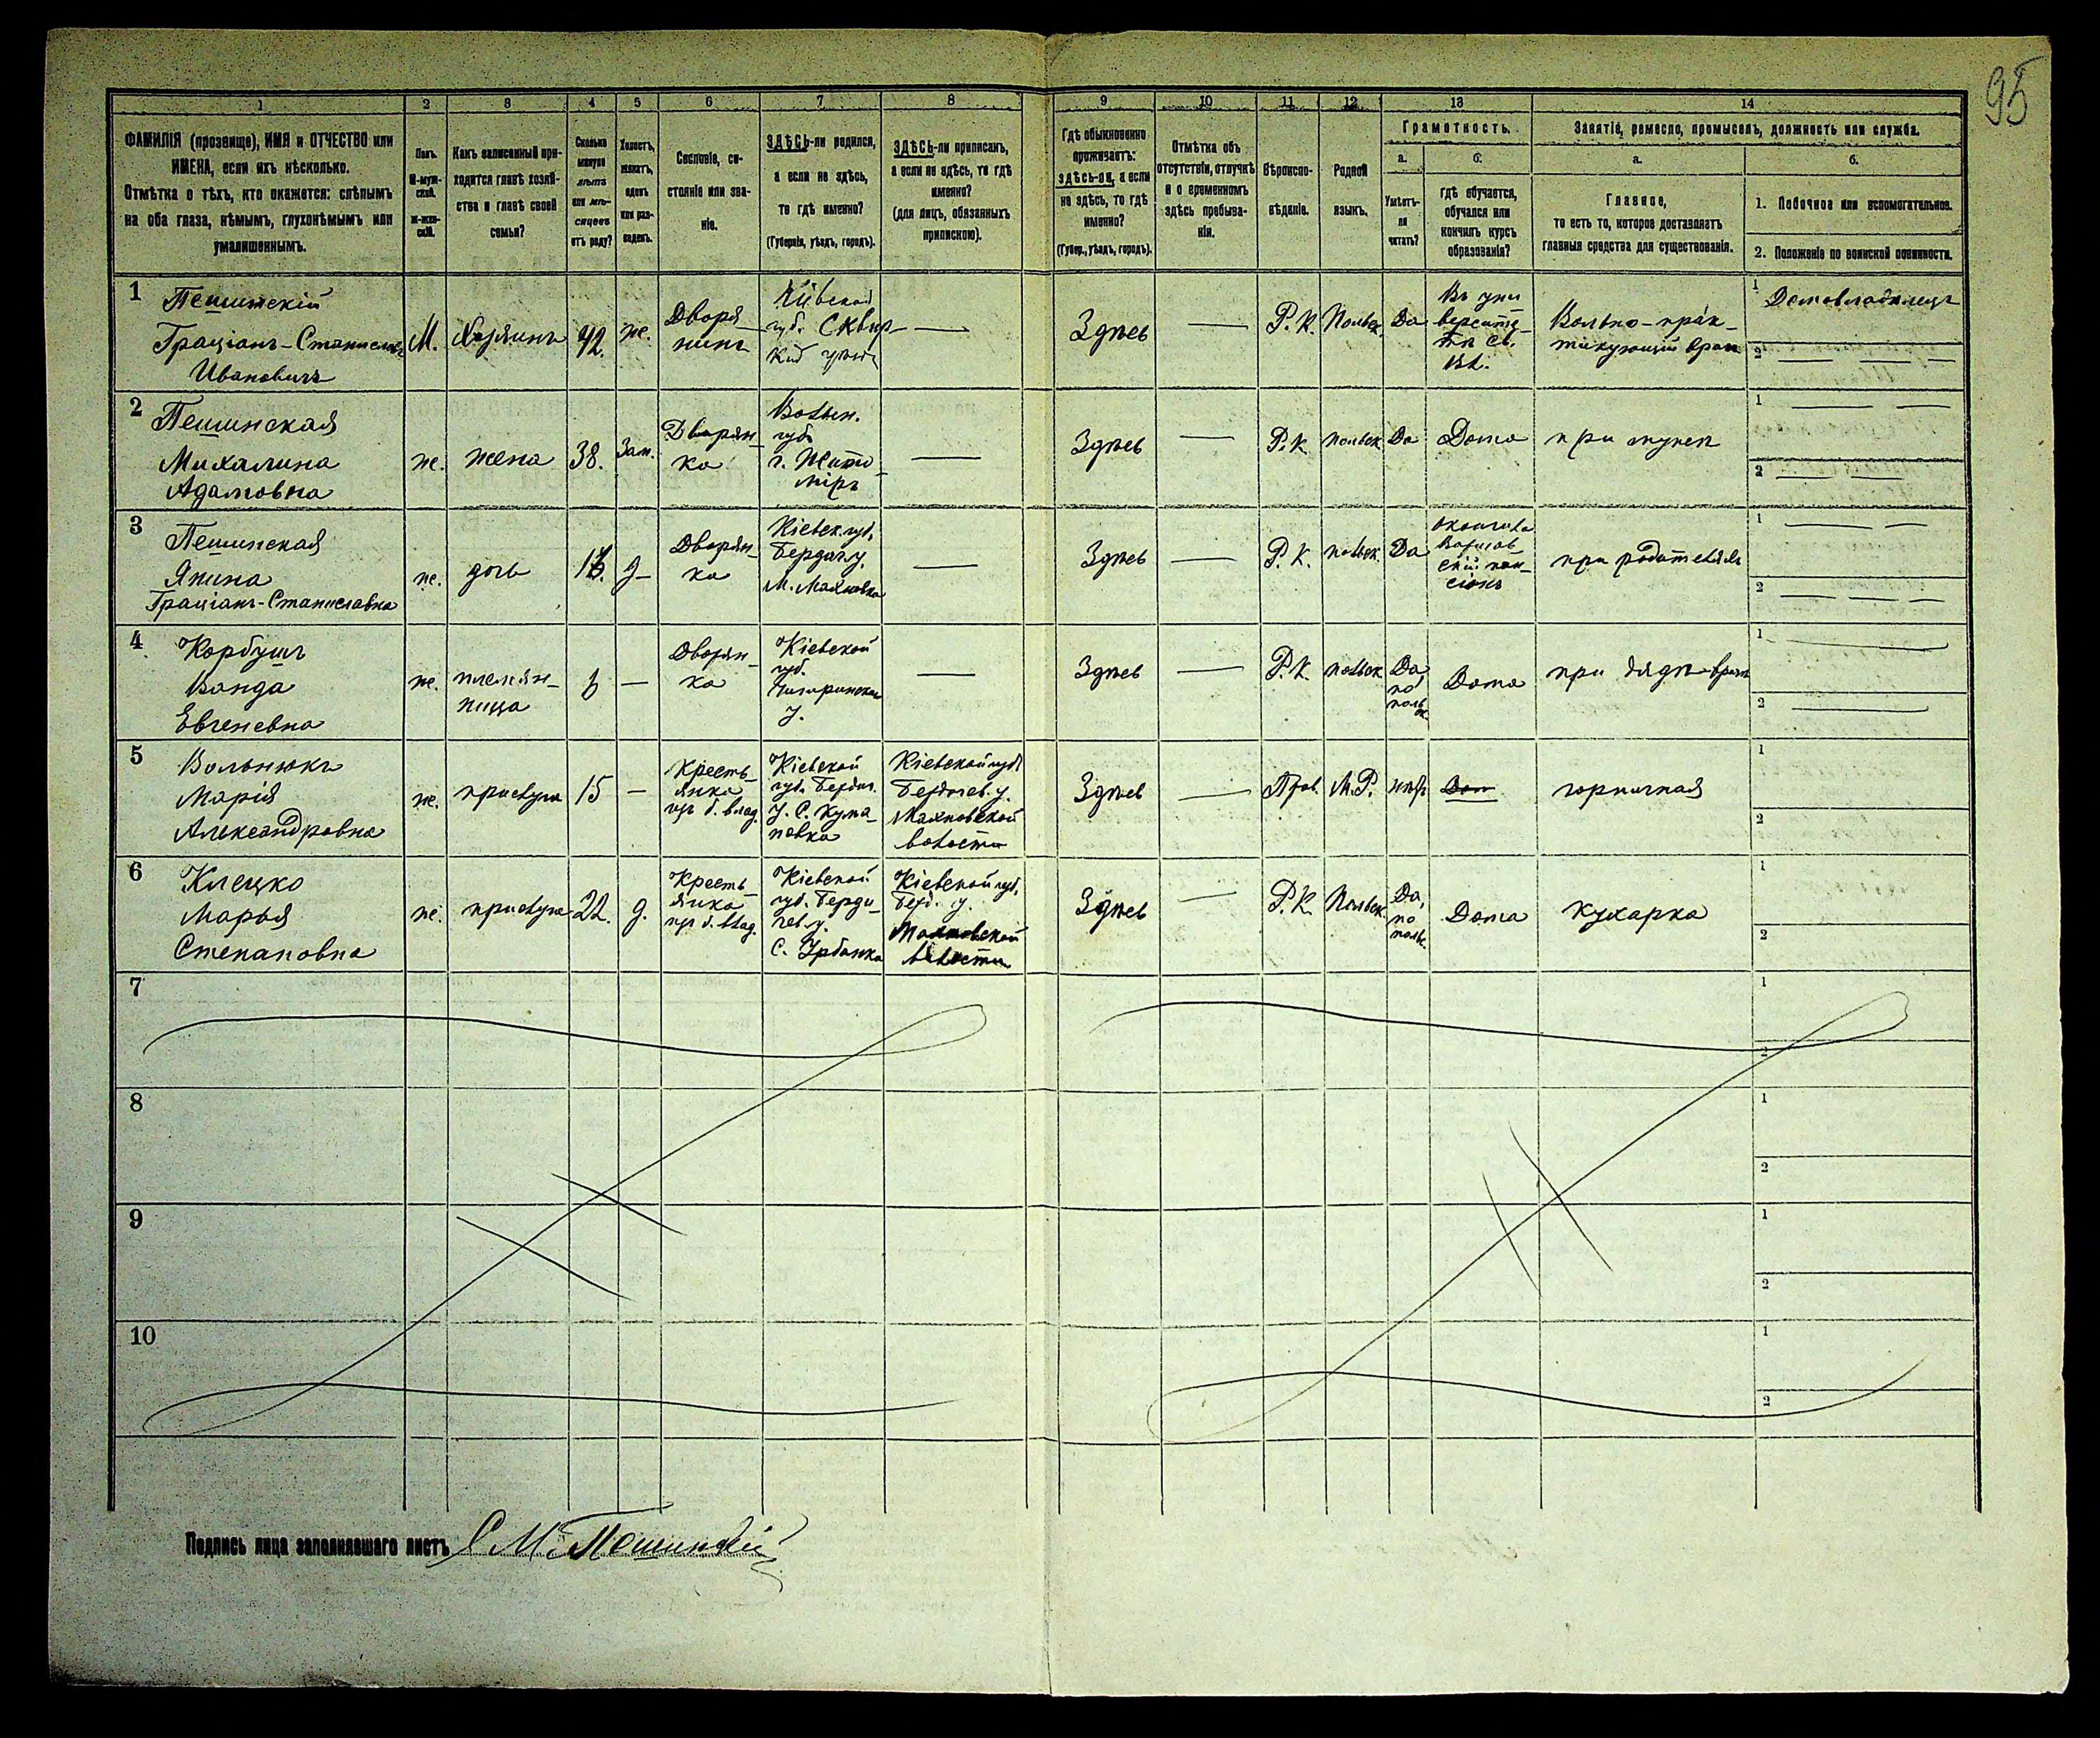 95
1 2 3 4 5 6 7 8 9 10 11 12 13 14
ФАМИЛІЯ (прозвище), ИМЯ и ОТЧЕСТВО или
ИМЕНА, если ихъ нѣсколько.
Отмѣтка о тѣхъ, кто окажется: слѣпымъ
на оба глаза, нѣмымъ, глухонѣмымъ или
умалишеннымъ.
Полъ.
М-муж-
ской.
ж-жен-
скій.
Какъ записанный при-
ходится главѣ хозяй-
ства и главѣ своей
семьи?
Сколько
минуло
лѣтъ
или мѣ-
сяцевъ
отъ роду?
Холостъ,
женатъ,
вдовъ
или раз-
веденъ.
Сословіе, со-
стояніе или зва-
ніе.
ЗДѢСЬ-ли родился,
а если не здѣсь,
то гдѣ именно?
(Губернія, уѣздъ, городъ).
ЗДѢСЬ-ли приписанъ,
а если не здѣсь, то гдѣ
именно?
(для лицъ, обязанныхъ
припискою).
Гдѣ обыкновенно
проживаетъ:
здѣсь-ли, а если
не здѣсь, то гдѣ
именно?
(Губер., уѣздъ, городъ).
Отмѣтка объ
отсутствіи, отлучкѣ
и о временномъ
здѣсь пребыва-
ніи.
Вѣроиспо-
вѣданіе.
Родной
языкъ.
Грамотность.
а.
Умѣетъ-
ли
читать?
б.
гдѣ обучается,
обучался или
кончилъ курсъ
образованія?
Занятіе, ремесло, промыселъ, должность или служба.
а.
Главное,
то есть то, которое доставляетъ
главныя средства для существованія.
б.
1. Побочное или вспомогательное.
2. Положеніе по воинской повинности.
1
Пешинскій
Граціанъ-Станиславъ
Ивановичъ
М.
Хозяинъ
42.
ж.
Дворя-
нинъ
Кіевской
губ. Сквир-
кій
Здѣсь
Р. К.
Польск.
Да
Въ уни-
верситe-
тѣ св.
Вл.
Вольно-прак-
тикующій врачъ
1
Домовладѣлецъ
2
2
Пешинская
Михалина
Адамовна
ж.
жена
38.
Зам.
Дворян-
ка
Волын.
губ.
г. Жито-
міръ
Здѣсь
Р. К.
польск
Да
Дома
при мужѣ
1
2
3
Пешинская
Янина
Граціанъ-Станиславна
ж.
дочь
д-
Дворян-
ка
Кіевск. губ,
Бердич. у.
М. Махновка
Здѣсь
Р. К.
польск.
Да
окончила
Варшав-
скій пан-
сіонъ
при родителяхъ
1
2
4
Корбушъ
Ванда
Евгеневна
ж.
племян-
ница
Дворян-
ка
Кіевской
губ.
Чигиринскаго
у.
Здѣсь
Р. К.
польск
Да,
по
польск.
Дома
при дядѣ-врачѣ
1
2
5
Вольнюкъ
Марія
Александровна
ж.
прислуга
15
Кресть-
янка
изъ б. влад.
Кіевской
губ. Бердич.
у. С. Кума-
новка
Кіевской губ.
Бердичев. у.
Махновской
волости
Здѣсь
Прав.
М. Р.
нѣтъ
Дом
горничная
1
2
6
Клецко
Марья
Степановна
ж.
прислуга
22.
д.
Кресть-
янка
изъ б. влад.
Кіевской
губ. Берди-
чев. у.
С. Урбанка
Кіевской губ.
Берд. у.
Махновской
волости
Здѣсь
Р. К.
Польск.
Да,
по
польс.
Дома
кухарка
1
2
7
1
2
8
1
2
9
1
2
10
1
2
Подпись лица заполнявшаго листъ Пешинскій